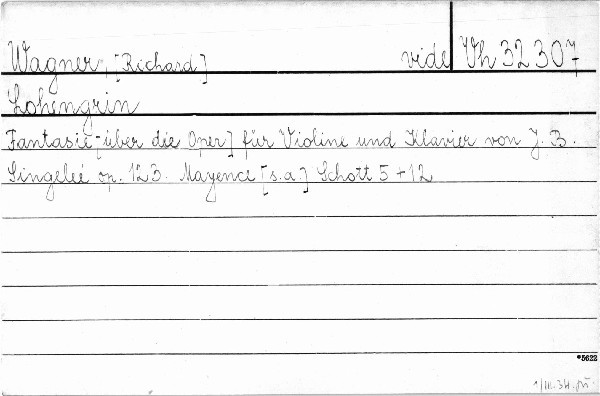 Wagner, [Richard] vide Vh 32 307
Lohengrin
Fantasie [über die Oper] für Violine und Klavier von J. B.
Singeleé op. 123. Mayence [s.a.] Schott 5 + 12
*5622